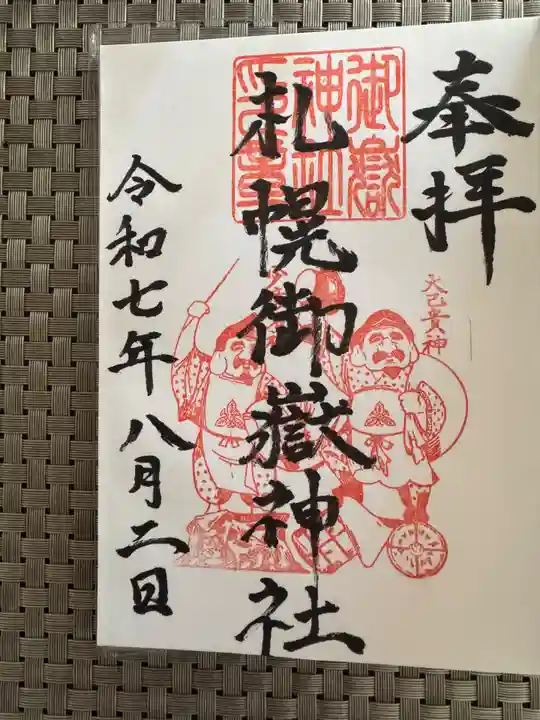 奉拝
大己貴神
札幌御嶽神社
御嶽
神社
令和七年八月二日